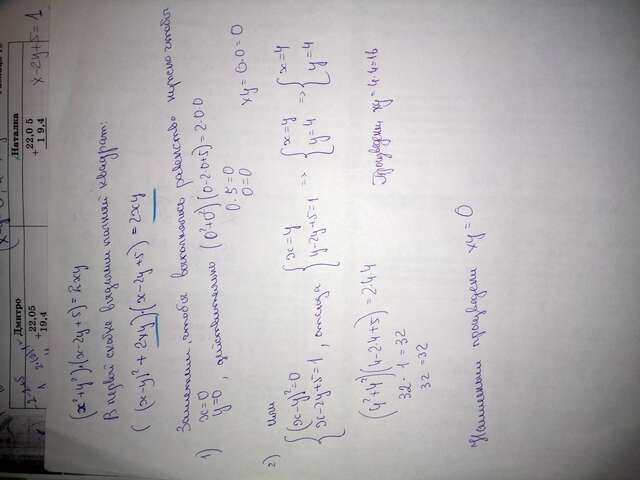 (x²+y²)·(x-2y+5)=2xy
В первой скобке выделим полный квадрат:
((x-y)²+2xy)·(x-2y+5)=2xy
Заметим, чтобы выполнялось равенство нужно чтобы
1) x=0
y=0, действительно (0²+0²)(0-2·0+5)=2·0·0
0·5=0
0=0
xy=0·0=0
или
2) {(x-y)²=0
x-2y+5=1, отсюда {x=y
y-2y+5=1 => {x=y
y=4 => {x=4
y=4
(4²+4²)(4-2·4+5)=2·4·4
32·1=32
32=32
Произведение xy=4·4=16
Наименьшее произведение xy=0
Дмитро
22,05
+19,4
Наталка
+22,05
19,4
x-2y+5=1